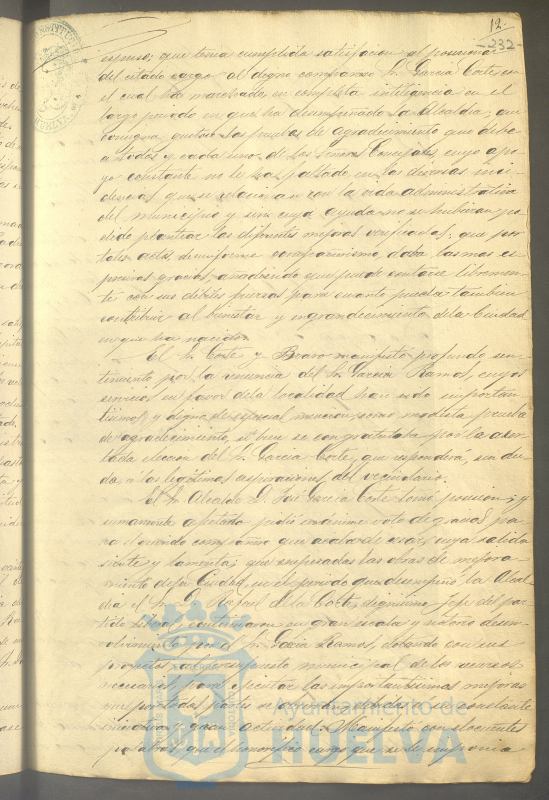 12.
-232-
expuso; que tenía cumplida satisfacion al posesionar
del citado cargo al digno compañero Sr. García Cortes en
el cual ha marchado en completa inteligencia en el
largo periodo en que ha desempeñado la Alcaldía; que
consigna gustoso las pruebas de agradecimiento que debe
a todos y cada uno de los Señores Concejales, cuyo apo-
yo constante no le ha faltado en las diversas inci-
dencias que se relacionan con la vida administrativa
del municipio y sin cuya ayuda no se hubieran po-
dido plantear las diferentes mejoras verificadas; que por
tales actos de uniforme compañerismo, daba las mas ex-
presivas gracias, añadiendo que puede contarse libremen-
te con sus débiles fuerzas para cuanto pueda tambien
contribuir al bienestar y engrandecimiento de la Ciudad
en que ha nacido.
El Sr. Corte y Bravo manifestó profundo sen-
timiento por la renuncia del Sr. García Ramos, cuyos
servicios en favor de la localidad han sido importan-
tísimos y dignos de especial mencion, como modesta prueba
de agradecimiento, si bien se congratulaba por la acer-
tada eleccion del Sr. García Cortes, que responderá, sin du-
da, á las legítimas aspiraciones del vecindario.
El Sr. Alcalde D. José García Cortes tomó posesion; y
sumamente afectado pidió unánime voto de gracias pa-
ra el querido compañero que acaba de cesar, cuya salida
siente y lamenta; que empezadas las obras de mejora-
miento de la Ciudad, en el periodo que desempeñó la Alcal-
día el Sr. D. Rafael de la Corte, dignísimo Jefe del par-
tido liberal, continuaron en gran escala y notorio desen-
volvimiento por el Sr. García Ramos, dotando con sus
proyectos al presupuesto municipal de los recursos
necesarios para ejecutar las importantísimas mejoras
constante
iniciativa y gran actividad. Manifestó con elocuentes
palabras que el honorífico cargo que se le imponia
Ayuntamiento de
HUELVA